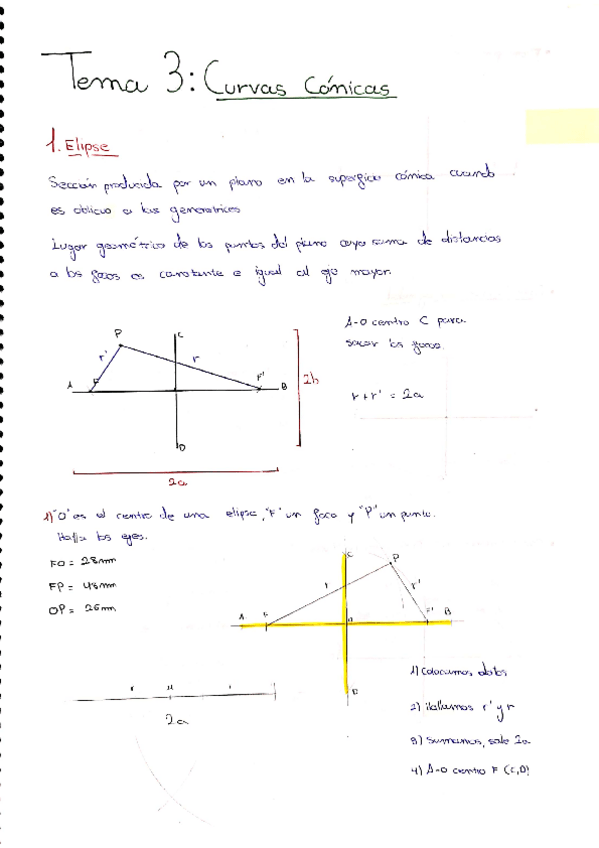 Tema 3: Curvas Cónicas
1. Elipse
Sección producida por un plano en la superficie cónica cuando
es oblicuo a las generatrices
Lugar geométrico de los puntos del plano cuya suma de distancias
a los focos es constante e igual al eje mayor.
P
C
r'
r
A
F
F'
B
2b
D
2a
A-O centro C para
sacar los focos.
r+r' = 2a
1) "O" es el centro de una elipse, "F" un foco y "P" un punto.
Halla los ejes.
FO = 28mm
FP = 48mm
OP = 26mm
C
P
r
r'
A
F
F'
B
D
2a
1) Colocamos datos
2) Hallamos r' y r
3) Sumamos, sale 2a
4) A-O centro F (C,D)